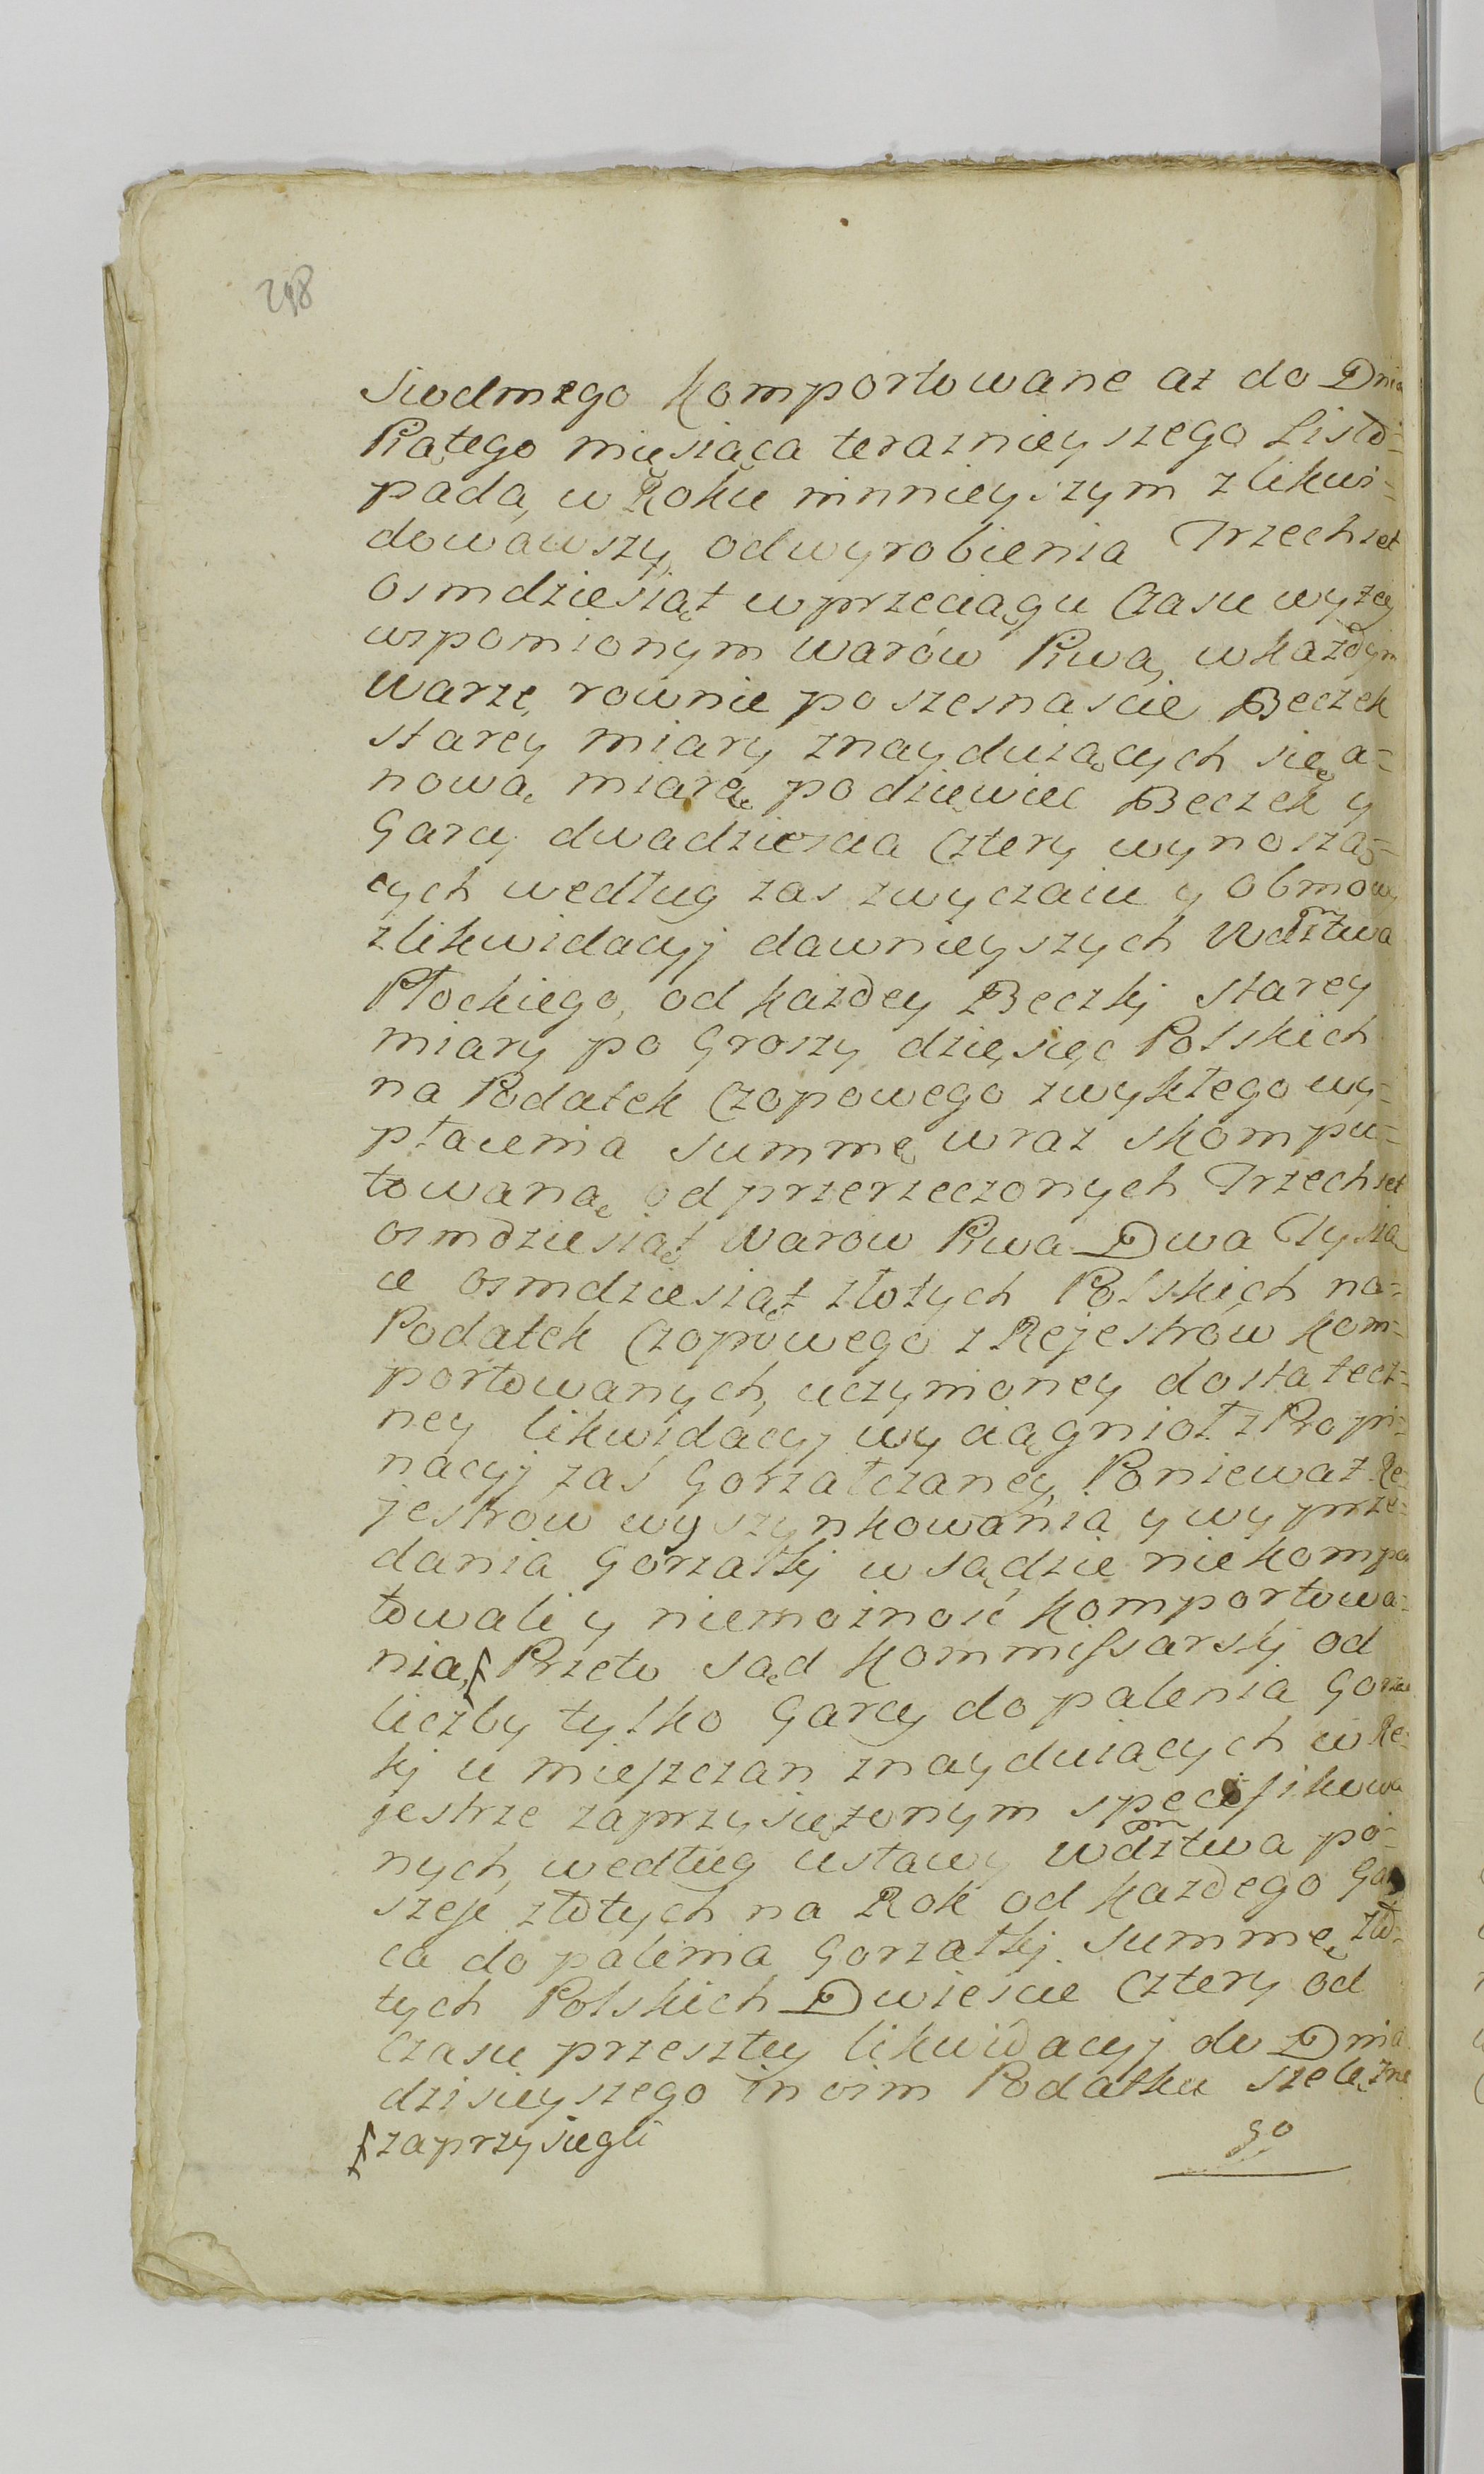 298
Siodmego Komportowane az do Dnia
Piątego miesiąca teraznieyszego Listo-
pada, w Roku ninnieyszym zlikwi-
dowawszy, od wyrobienia Trzechset
osmdziesiąt w przeciągu Czasu wyzey
wspomionym Warów Piwa, w każdym
Warze, rownie po szesnascie Beczek
starey miary znayduiących się, a-
nową miarą po dziewiec Beczek y
Garcy dwadziescia Cztery wynoszą-
cych według zas zwyczaiu y Obmowy
zlikwidacyj dawnieyszych Wdztwa
Płockiego, od każdey Beczkj starey
miary po Groszy dzięsięc Polskich
na Podatek Czopowego zwykłego wy-
płacenia Summę wraz skompu-
towaną od przerzeczonych Trzechset
osmdziesiąt Warow Piwa Dwa Tysią
ce osmdziesiąt złotych Polskich na-
Podatek Czopowego z Rejestrów kom-
portowanych, uczynioney dostatecz-
ney likwidacyj wyciągnioł z Propi-
nacyj zaś Gorzałczaney, Poniewaz Re-
jestrow wyszynkowania y wyprze-
dania Gorzałkj w Sądzie nie kompor
towali y niemożność komportowa-
nia, ƒ Przeto Sąd Kommissarskj od
liczby tylko Garcy do palenia Gorzał
kj u miejszczan znayduiących w Re-
jestrze zaprzysiężonym specifikowa
nych, według ustawy Wdztwa po-
szejć złotych na Rok od każdego Gar
ca do palenia Gorzałkj Summę zło-
tych Polskich Dwiescie Cztery od
Czasu przeszłey likwidacyj do Dnia
dzisieyszego in vim Podatku szelężne
ƒ zaprzysiegli
go